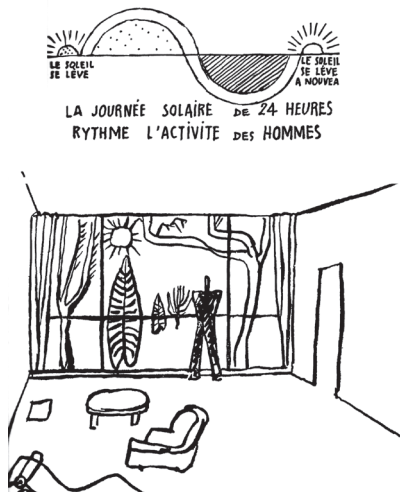 LE SOLEIL
SE LÈVE
LE SOLEIL
SE LÉVE
A NOUVEA
LA JOURNÉE SOLAIRE DE 24 HEURES
RYTHME L'ACTIVITE DES HOMMES